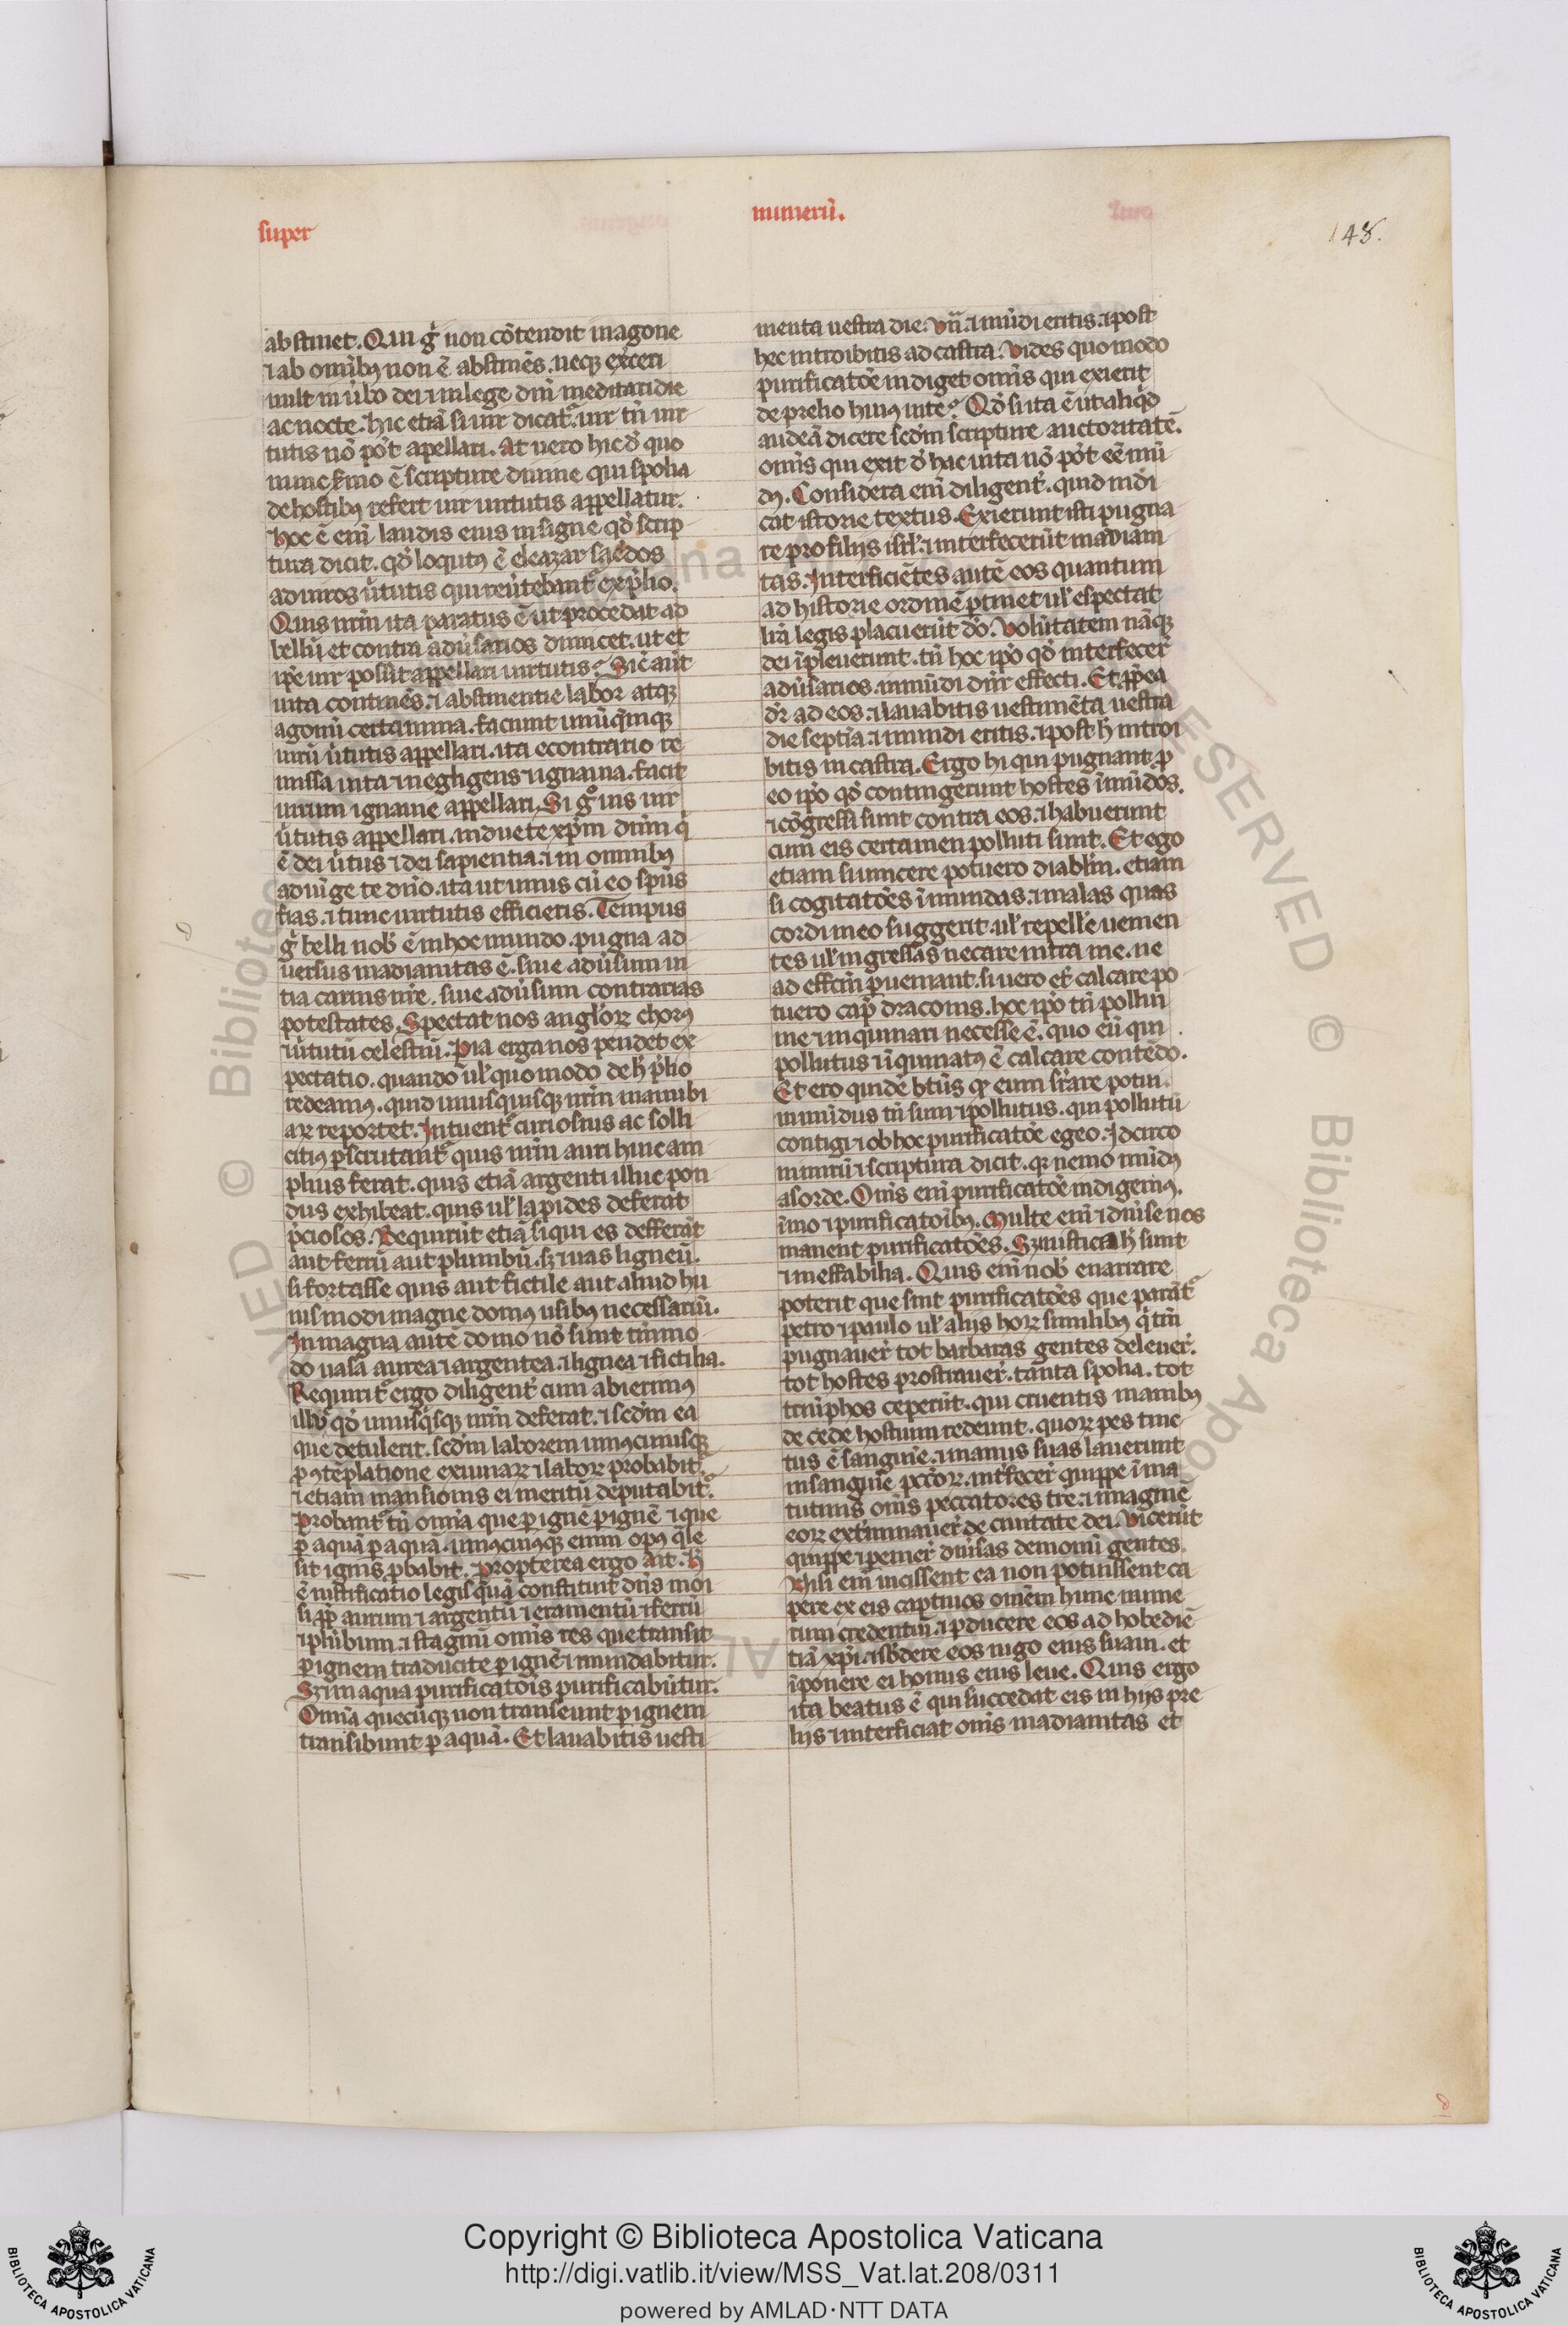 super
numerū.
148.
abstinet. Qui gͦ non cōtendit in agone
⁊ ab omībꝰ non ē abstinēs. neqꝫ exerceri
uult in ũbo dei ⁊ in lege dnī meditari die
ac nocte. hic etiā si uir dicatᷣ. uir tn̄ uir
tutis nō pōt apellari. At uero hic d̓ quo
nunc s̓mo ē scripture diuine qui spolia
de hostibꝰ refert uir uirtutis appellatur.
Hoc ē eni̅ laudis eius insigne qd̓ scrip
tura dicit. qd̓ locutꝰ ē eleazar sac̓dos
ad uiros ũtutis qui reũtebantᷣ ex p̓lio.
Quis nr̄m ita paratus ē ut procedat ad
bellū et contra adũsarios dimicet. ut et
ip̄e uir possit appellari uirtutis? Sic aūt
uita continēs. ⁊ abstinentie labor atqꝫ
agonū certamina. faciunt unūqͥnqꝫ
uirū ũtutis appellari. ita econtrario re
missa uita ⁊ negligens ⁊ ignauia. facit
uirum ignauie appellari. Si gͦ uis uir
ũtutis appellari. induete xp̄m dnm̄ qͥ
ē dei ũtus ⁊ dei sapientia. ⁊ in omnibꝰ
adiūge te dn̄o. ita ut unus cū eo sp̄us
fias. ⁊ tunc uirtutis efficieris. Tempus
gͦ belli nob̓ ē in hoc mundo. pugna ad
uersus madianitas ē. siue adũsum ui
tia carnis nr̄e. siue adũsum contrarias
potestates. Spectat nos angl̓oꝝ chorꝰ
⁊ ũtutū celestiū. Pia erga nos pendet ex
pectatio. quando ul̓ quomodo de h̓ p̓lio
redeamꝰ. quid unusquisqꝫ nr̄m manubi
aꝝ reportet. Intuentᷣ curiosius ac solli
citiꝰ ꝑscrutantᷣ quis nr̄m auri hinc am
plius ferat. quis etiā argenti illuc pon
dus exhibeat. quis ul̓ lapides deferat
p̓ciosos. Requirūt etiā si qui es defferāt
aut ferrū aut plumbū. sꝫ ⁊ uas ligneū.
si fortasse quis aut fictile aut aliud hu
iusmodi magne domꝰ usibꝰ necessariū.
In magna autē domo nō sunt tm̄mo
do uasa aurea ⁊ argentea. ⁊ lignea ⁊ fictilia.
Requiritᷣ ergo diligent̓ cum abierimꝰ
illuc qd̓ unusqͥsqꝫ nr̄m deferat. ⁊ scd̓m ea
que detulerit. scd̓m laborem uniꝰcuiusqꝫ
ꝑ ꝯtēplatione exiuuiaꝝ ⁊ laboꝝ probabitᷣ
⁊ etiam mansionis ei meritū deputabitᷣ.
Probantᷣ tn̄ omīa que ꝑ ignē ꝑ ignē ⁊ que
ꝑ aquā ꝑ aquā. uniꝰcuiꝰqꝫ enim opꝰ qͣle
sit ignis ꝓbabit. Propterea ergo ait. H̓
ē iustificatio legis quā constituit dn̄s moi
si p̄p̄ aurum ⁊ argentū ⁊ eramentū ⁊ ferrū
⁊ plūbum. ⁊ stagnū omīs res que transit
ꝑ ignem traducite ꝑ ignē ⁊ mundabitur.
Sꝫ ⁊ in aqua purificatōis purificabūtur.
Omīa quecūqꝫ non transeunt ꝑ ignem
transibunt ꝑ aquā. Et lauabitis uesti
menta uestra die. vij. ⁊ mūdi eritis. ⁊ post
hec introibitis ad castra. Vides quomodo
purificatōe indiget omīs qui exierit
de prelio huiꝰ uite? Qd̓ si ita ē ut aliqͥd
audeā dicere scd̓m scripture auctoritatē.
omīs qui exit d̓ hac uita nō pōt eē mū
dꝰ. Considera eni̅ diligent̓. quid indi
cat istorie textus. Exierunt isti pugna
re pro filijs isrl̓. ⁊ interfecerūt madian
tas. Interficiētes autē eos quantum
ad historie ordinē ꝑtinet ul̓ espectat
lr̄a legis placuerūt dō. Volūtatem nāqꝫ
dei īpleuerunt. tn̄ hoc ip̄o qd̓ interfecer̄
adũsarios. inmūdi dnr̄ effecti. Et p̄p̄ea
dr̄ ad eos. ⁊ lauabitis uestimēta uestra
die septīa. ⁊ mundi eritis. ⁊ post h̓ introi
bitis in castra. Ergo hi qui pugnant. ꝓ
eo ip̄o qd̓ contingerunt hostes īmūdos.
⁊ cōgressi sunt contra eos. ⁊ habuerunt
cum eis certamen polluti sunt. Et ego
etiam si uincere potuero diablm̄. etiam
si cogitatōes īmundas. ⁊ malas quas
cordi meo suggerit. ul̓ repelle̓ uenien
tes ul̓ ingressas necare intra me. ne
ad effcm̄ ꝑueniant. si uero et calcare po
tuero cap̄ draconis. hoc ip̄o tn̄ pollui
me ⁊ inquinari necesse ē. quo eū qui
pollutus ⁊ īquinatꝰ ē calcare contēdo.
Et ero quidē bt̄us qꝛ eum st̓are potui.
inmūdus tn̄ sum ⁊ pollutus. qui pollutū
contigi ⁊ ob hoc purificatōe egeo. Idcirco
nimirū ⁊ scriptura dicit. qꝛ nemo mūdꝰ
a sorde. Omīs eni̅ purificatōe indigemꝰ.
īmo ⁊ purificatoībꝰ. Multe eni̅ ⁊ diũse nos
manent purificatōes. Sꝫ mistica h̓ sunt
⁊ ineffabilia. Quis eni̅ nob̓ enarrare
poterit que sint purificatōes que parātᷣ
petro ⁊ paulo ul̓ alijs hoꝝ similibꝰ qͥ tm̄
pugnauer̄ tot barbaras gentes deleuer̄.
tot hostes prostrauer̄. tanta spolia. tot
triūphos ceperūt. qui cruentis manibꝰ
de cede hostium redeunt. quoꝝ pes tinc
tus ē sanguīe. ⁊ manus suas lauerunt
in sanguīe pcc̄oꝝ. int̓fecer̄ quippe ī ma
tutinis omīs peccatores tr̄e. ⁊ imaginē
eoꝝ ext̓minauer̄ de ciuitate dei. Vicerūt
quippe ⁊ pemer̄ diũsas demonū gentes.
Nisi eni̅ uicissent ea non potuissent ca
pere ex eis captiuos omēm hunc nume
rum credentiū. ⁊ ꝑducere eos ad hobediē
tiā xp̄i. ⁊ sb̓dere eos iugo eius suaui. et
īponere ei honus eius leue. Quis ergo
ita beatus ē qui succedat eis in hijs pre
lijs ⁊ interficiat omīs madianitas et
Copyright © Biblioteca Apostolica Vaticana
http://digi.vatlib.it/view/MSS_Vat.lat.208/0311
powered by AMLAD·NTT DATA
BIBLIOTECA APOSTOLICA VATICANA
BIBLIOTECA APOSTOLICA VATICANA